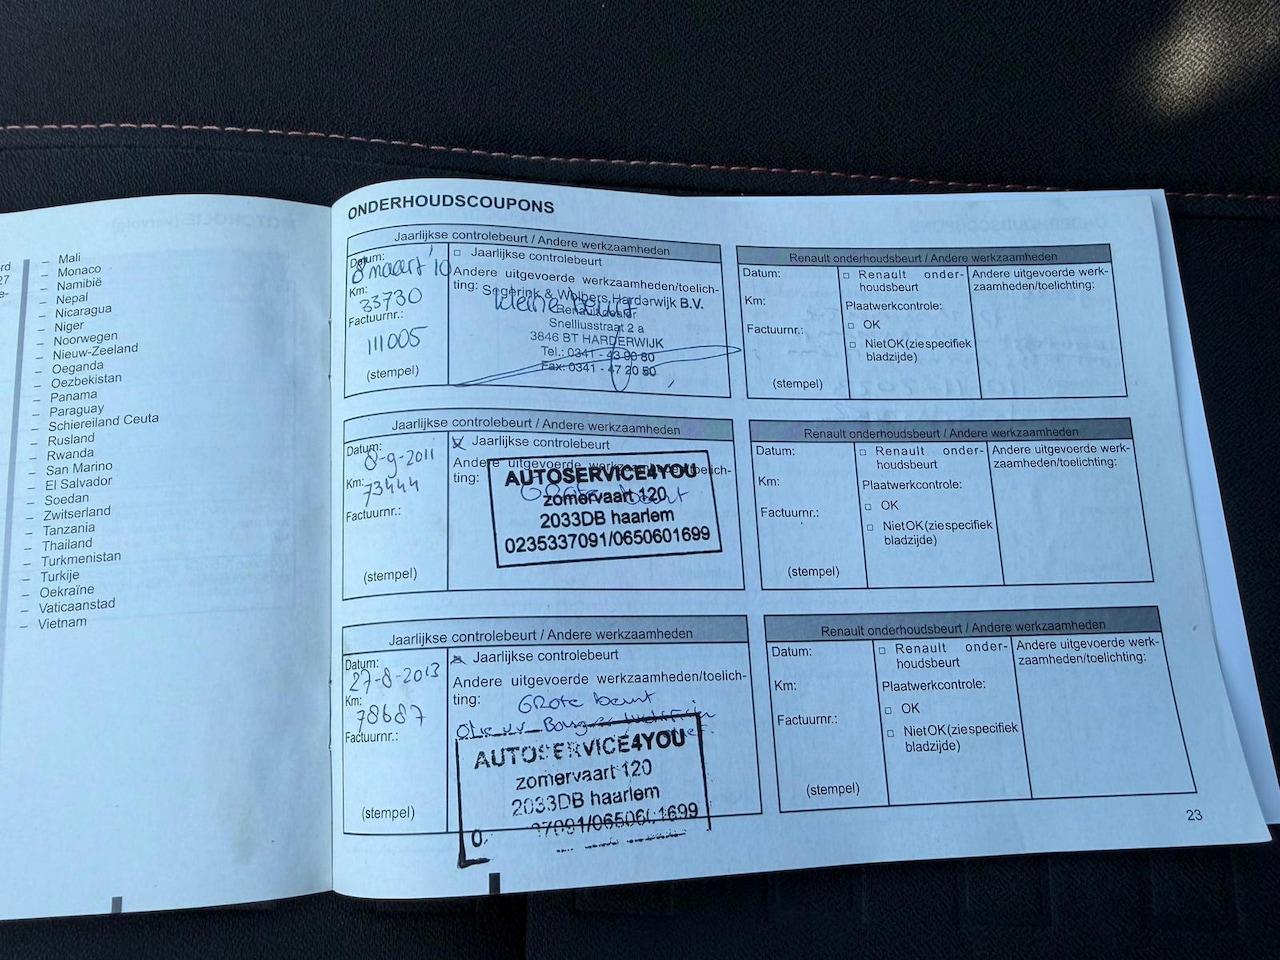 ord
27
e-
– Mali
– Monaco
– Namibië
– Nepal
– Nicaragua
– Niger
– Noorwegen
– Nieuw-Zeeland
– Oeganda
– Oezbekistan
– Panama
– Paraguay
– Schiereiland Ceuta
– Rusland
– Rwanda
– San Marino
– El Salvador
– Soedan
– Zwitserland
– Tanzania
– Thailand
– Turkmenistan
– Turkije
– Oekraïne
– Vaticaanstad
– Vietnam
ONDERHOUDSCOUPONS
Jaarlijkse controlebeurt / Andere werkzaamheden
Datum:
8 maart '10
Km:
33730
Factuurnr.:
111005
(stempel)
Jaarlijkse controlebeurt
Andere uitgevoerde werkzaamheden/toelich-
ting:
kleine beurt
Segerink & Wolbers Harderwijk B.V.
Renault dealer
Snelliusstraat 2 a
3846 BT HARDERWIJK
Tel.: 0341 - 43 00 80
Fax: 0341 - 47 20 80
Renault onderhoudsbeurt / Andere werkzaamheden
Datum:
Km:
Factuurnr.:
(stempel)
Renault onder-
houdsbeurt
Plaatwerkcontrole:
OK
Niet OK (zie specifiek
bladzijde)
Andere uitgevoerde werk-
zaamheden/toelichting:
Jaarlijkse controlebeurt / Andere werkzaamheden
Datum:
8-9-2011
Km:
73444
Factuurnr.:
(stempel)
x Jaarlijkse controlebeurt
Andere uitgevoerde werkzaamheden/toelich-
ting:
GRote beurt
AUTOSERVICE4YOU
zomervaart 120
2033DB haarlem
0235337091/0650601699
Renault onderhoudsbeurt / Andere werkzaamheden
Datum:
Km:
Factuurnr.:
(stempel)
Renault onder-
houdsbeurt
Plaatwerkcontrole:
OK
Niet OK (zie specifiek
bladzijde)
Andere uitgevoerde werk-
zaamheden/toelichting:
Jaarlijkse controlebeurt / Andere werkzaamheden
Datum:
27-8-2013
Km:
78687
Factuurnr.:
(stempel)
x Jaarlijkse controlebeurt
Andere uitgevoerde werkzaamheden/toelich-
ting:
GRote beurt
AUTOSERVICE4YOU
zomervaart 120
2033DB haarlem
Renault onderhoudsbeurt / Andere werkzaamheden
Datum:
Km:
Factuurnr.:
(stempel)
Renault onder-
houdsbeurt
Plaatwerkcontrole:
OK
Niet OK (zie specifiek
bladzijde)
Andere uitgevoerde werk-
zaamheden/toelichting:
23